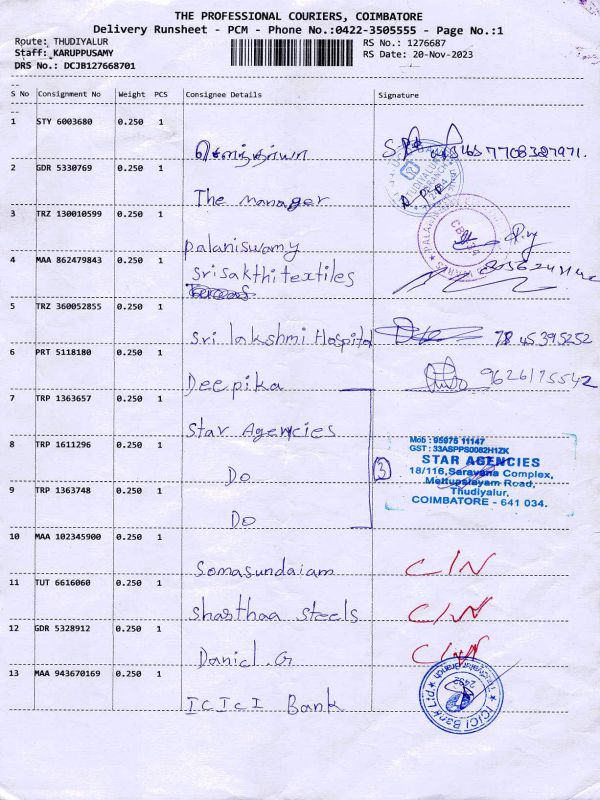 THE PROFESSIONAL COURIERS, COIMBATORE
Delivery Runsheet - PCM - Phone No.:0422-3505555 - Page No.:1
Route: THUDIYALUR RS No.: 1276687
Staff: KARUPPUSAMY RS Date: 20-Nov-2023
DRS No.: DCJB127668701
S No Consignment No Weight PCS Consignee Details Signature
1 STY 6003680 0.250 1
7708327971.
2 GDR 5330769 0.250 1
The manager
3 TRZ 130010599 0.250 1
palaniswamy
4 MAA 862479843 0.250 1
srisakthitextiles
5 TRZ 360052855 0.250 1
Sri lakshmi Hospital 78 45 395252
6 PRT 5118180 0.250 1
Deepika 9626175542
7 TRP 1363657 0.250 1
Star Agencies
8 TRP 1611296 0.250 1
Do
9 TRP 1363748 0.250 1
Do
3
Mob : 95975 11147
GST : 33ASPPS0082H1ZK
STAR AGENCIES
18/116, Saravana Complex,
Mettupalayam Road,
Thudiyalur,
COIMBATORE - 641 034.
10 MAA 102345900 0.250 1
Somasundaram C/N
11 TUT 6616060 0.250 1
sharthaa steels C/N
12 GDR 5328912 0.250 1
Daniel . G C/N
13 MAA 943670169 0.250 1
ICICI Bank
ICICI Bank Ltd. Thudiyalur Branch